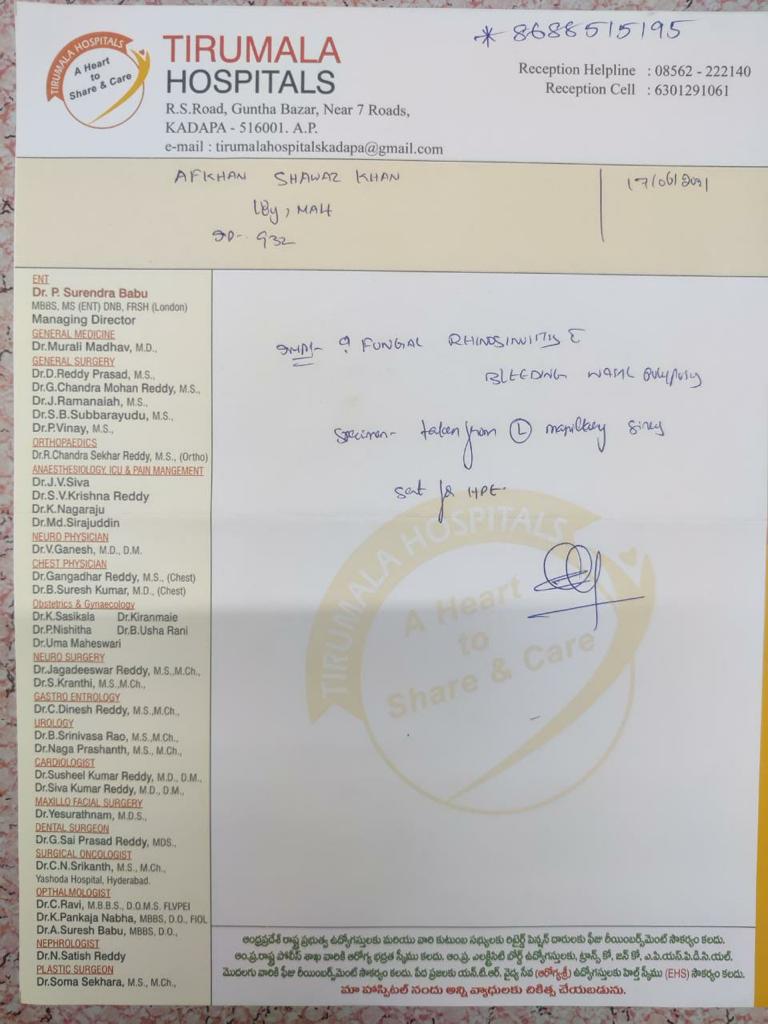 * 8688515195
TIRUMALA HOSPITALS
A Heart
to
Share & Care
TIRUMALA
HOSPITALS
R.S.Road, Guntha Bazar, Near 7 Roads,
KADAPA - 516001. A.P.
e-mail : tirumalahospitalskadapa@gmail.com
Reception Helpline : 08562 - 222140
Reception Cell : 6301291061
AFKHAN SHAWAZ KHAN
17/06/2021
18y, MAH
932
ENT
Dr. P. Surendra Babu
MBBS, MS (ENT) DNB, FRSH (London)
Managing Director
GENERAL MEDICINE
Dr.Murali Madhav, M.D.,
GENERAL SURGERY
Dr.D.Reddy Prasad, M.S.,
Dr.G.Chandra Mohan Reddy, M.S.,
Dr.J.Ramanaiah, M.S.,
Dr.S.B.Subbarayudu, M.S.,
Dr.P.Vinay, M.S.,
ORTHOPAEDICS
Dr.R.Chandra Sekhar Reddy, M.S., (Ortho)
ANAESTHESIOLOGY, ICU & PAIN MANGEMENT
Dr.J.V.Siva
Dr.S.V.Krishna Reddy
Dr.K.Nagaraju
Dr.Md.Sirajuddin
NEURO PHYSICIAN
Dr.V.Ganesh, M.D., D.M.
CHEST PHYSICIAN
Dr.Gangadhar Reddy, M.S., (Chest)
Dr.B.Suresh Kumar, M.D., (Chest)
Obstetrics & Gynaecology
Dr.K.Sasikala Dr.Kiranmaie
Dr.P.Nishitha Dr.B.Usha Rani
Dr.Uma Maheswari
NEURO SURGERY
Dr.Jagadeeswar Reddy, M.S.,M.Ch.,
Dr.S.Kranthi, M.S.,M.Ch.,
GASTRO ENTROLOGY
Dr.C.Dinesh Reddy, M.S.,M.Ch.,
UROLOGY
Dr.B.Srinivasa Rao, M.S.,M.Ch.,
Dr.Naga Prashanth, M.S., M.Ch.,
CARDIOLOGIST
Dr.Susheel Kumar Reddy, M.D., D.M.,
Dr.Siva Kumar Reddy, M.D., D.M.,
MAXILLO FACIAL SURGERY
Dr.Yesurathnam, M.D.S.,
DENTAL SURGEON
Dr.G.Sai Prasad Reddy, MDS.,
SURGICAL ONCOLOGIST
Dr.C.N.Srikanth, M.S., M.Ch.,
Yashoda Hospital, Hyderabad.
OPTHALMOLOGIST
Dr.C.Ravi, M.B.B.S., D.O.M.S. FLVPEI
Dr.K.Pankaja Nabha, MBBS, D.O., FIOL
Dr.A.Suresh Babu, MBBS, D.O.,
NEPHROLOGIST
Dr.N.Satish Reddy
PLASTIC SURGEON
Dr.Soma Sekhara, M.S., M.Ch.,
? FUNGAL RHINOSINUITIS c̄
BLEEDING NASAL polyposis
Specimen- taken from (L) maxillary sinus
sent for HPE.
TIRUMALA HOSPITALS
A Heart
to
Share & Care
ఆంధ్రప్రదేశ్ రాష్ట్ర ప్రభుత్వ ఉద్యోగస్తులకు మరియు వారి కుటుంబ సభ్యులకు రిటైర్డ్ పెన్షన్ దారులకు ఫీజు రీయింబర్స్‌మెంట్ సౌకర్యం కలదు.
ఆం.ప్ర.రాష్ట్ర పోలీస్ శాఖ వారికి ఆరోగ్య భద్రత స్కీము కలదు. ఆం.ప్ర. ఎలక్ట్రిసిటి బోర్డ్ ఉద్యోగస్తులకు, ట్రాన్స్ కో, జన్ కో, ఎ.పి.యస్.పి.డి.సి.యల్.
మొదలగు వారికి ఫీజు రీయింబర్స్‌మెంట్ సౌకర్యం కలదు. పేద ప్రజలకు యన్.టి.ఆర్. వైద్య సేవ (ఆరోగ్యశ్రీ) ఉద్యోగస్తులకు హెల్త్ స్కీము (EHS) సౌకర్యం కలదు.
మా హాస్పిటల్ నందు అన్ని వ్యాధులకు చికిత్స చేయబడును.